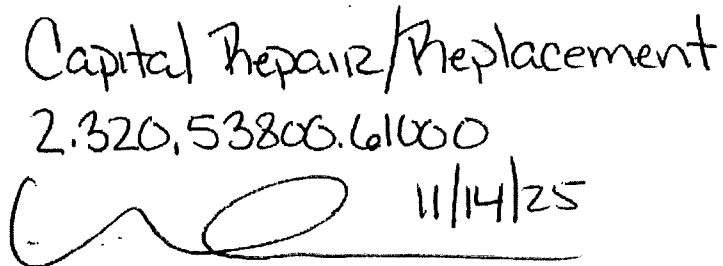 Capital Repair/Replacement
2.320.53800.61000
11/14/25